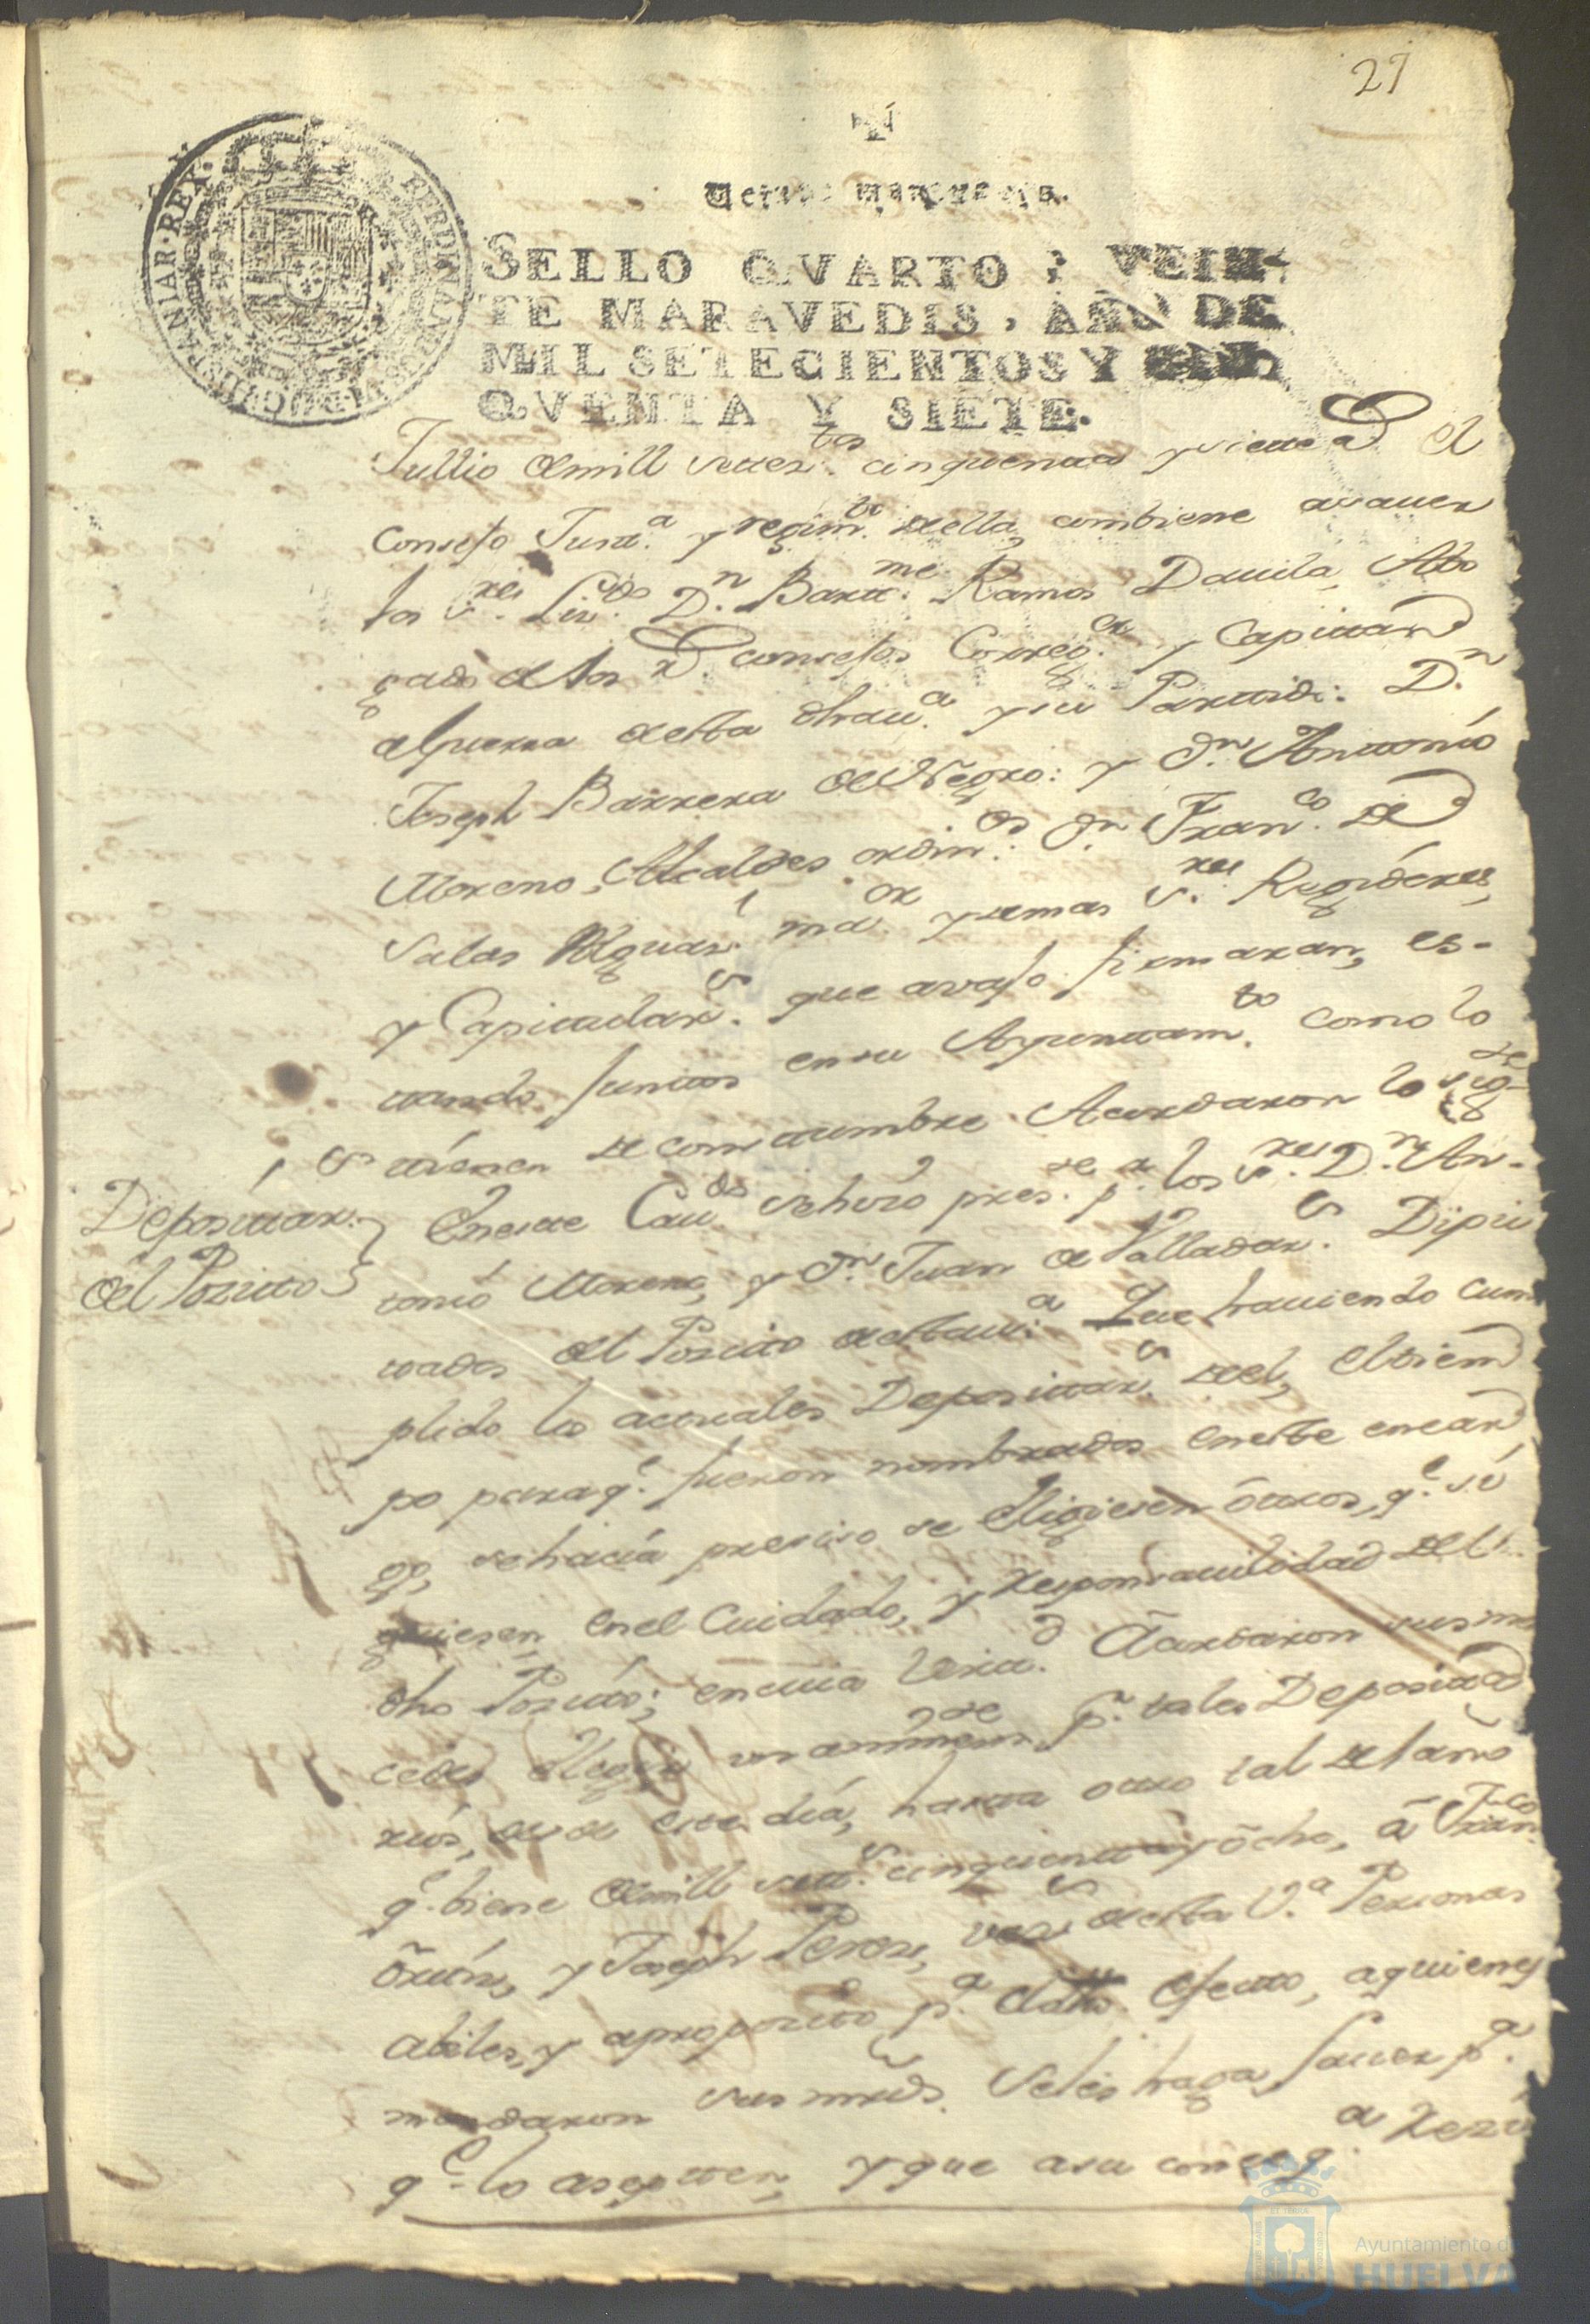 27
Veinte maravedis.
SELLO QVARTO, VEIN-
TE MARAVEDIS, AÑO DE
MIL SETECIENTOS Y CIN
QVENTA Y SIETE.
FERDINANDUS·VI·D·G·HISPANIAR·REX·
Jullio de mill settez.tos cinquenta y siette a.s el
Consejo Just.a y regim.to de ella, combiene a saver
los S.res Liz.do D.n Bart.me Ramos Davila, Abo
gado de los R. consejos Correg.or y Capittan
a guerra de esta dha v.a y su Partido: D.n
Joseph Barrera de Negro: y d.n Antonio
Moreno, Alcaldes ordin.os d.n Fran.co de
Salas Alguas.l ma.or y demas S.res Regidores,
y Capitular.s que avajo firmaran, es-
tando juntos en su Ayuntam.to como lo
tienen de costumbre Acordaron lo sig.te
Depositar.s
del Pozitto
En este Cav.do se hizo pres.te p.r los S.res D.n An-
tonio Moreno, y d.n Juan de Valladar.s Dipu
tados del Pozito de esta v.a Que haviendo cum
plido los actuales Depositar.s de el, el tiem
po para q.e fueron nombrados en este encar
go, se hacia preciso se eligiesen ôttros, q.e si
guiesen en el Cuidado, y responsavilidad del
dho Pozito; en cuia virtt.d Acordaron sus mr
cedes elegir unanimem.te p.r tales Deposita
rios, desde este dia, hasta otro tal del año
q.e biene de mill sett.s cinquenta y ôcho, â Fran.co
Ôrtiz, y Joseph Perez, vez.s de esta V.a Personas
abiles, y aproposito p.a el dho efecto, a quienes
mandaron sus mrds. se les haga saver p.a
q.e lo asepten, y que a su conseq.a rezi
Ayuntamiento de
HUELVA